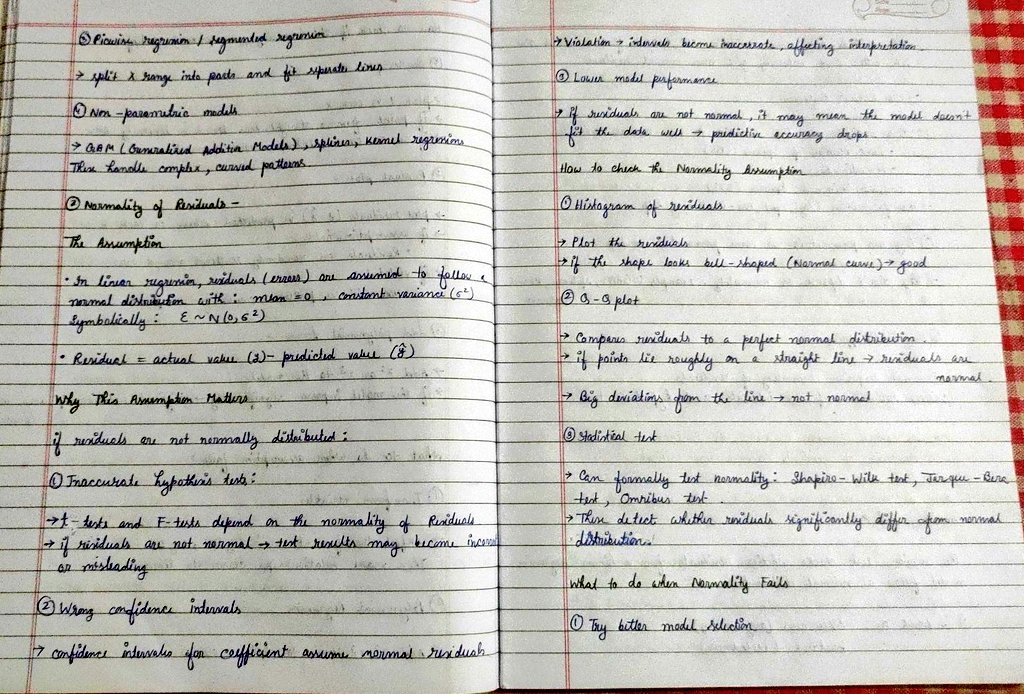 ③ Picwise regression / segmented regression
→ split X range into parts and fit seperate lines
④ Non-parametric models
→ GAM (Generalized Additive Models), splines, kernel regressions
These handle complex, curved patterns
② Normality of Residuals -
The Assumption
• In linear regression, residuals (errors) are assumed to follow a
normal distribution with: mean = 0, constant variance (σ²)
Symbolically: ε ~ N(0, σ²)
• Residual = actual value (y) - predicted value (ŷ)
Why This Assumption Matters
if residuals are not normally distributed:
① Inaccurate hypothesis tests:
→ t-tests and F-tests depend on the normality of Residuals
→ if residuals are not normal → test results may become
or misleading
② Wrong confidence intervals
→ confidence intervals for coefficient assume normal residuals
→ Violation → intervals become inaccurate, affecting interpretation
③ Lower model performance
→ if residuals are not normal, it may mean the model doesn't
fit the data well → predictive accuracy drops
How to check the Normality Assumption
① Histogram of residuals
→ Plot the residuals
→ if the shape looks bell-shaped (Normal curve) → good
② Q-Q plot
→ Compares residuals to a perfect normal distribution.
→ if points lie roughly on a straight line → residuals are
normal.
→ Big deviations from the line → not normal
③ Statistical test
→ Can formally test normality: Shapiro-Wilk test, Jarque-Bera
test, Omnibus test.
→ These detect whether residuals significantly differ from normal
distribution.
What to do when Normality Fails
① Try better model selection